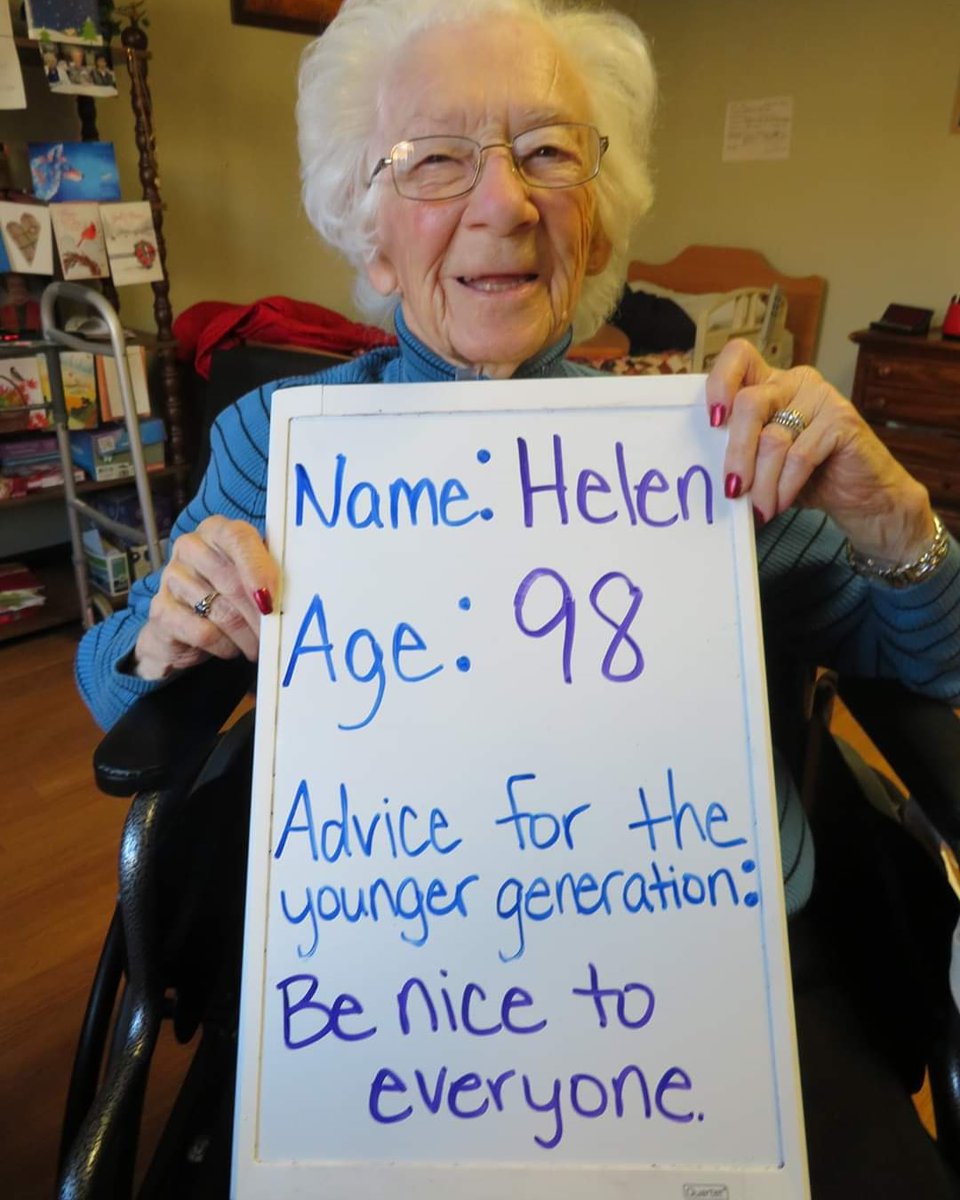 Name: Helen
Age: 98
Advice for the
younger generation:
Be nice to
everyone.
Quartet